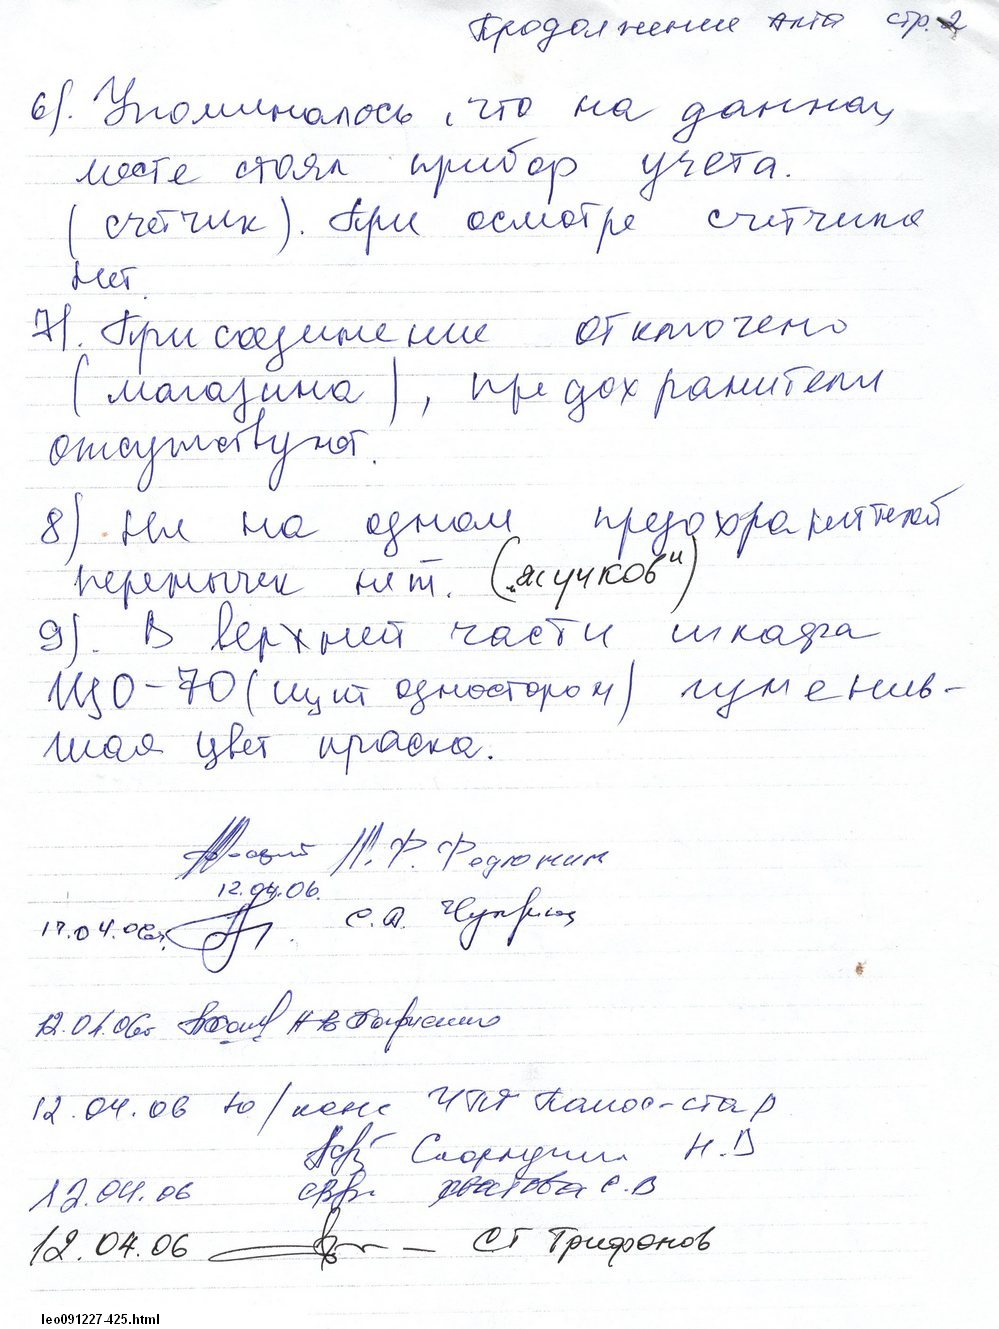 Продолжение Акта стр. 2
6). Упоминалось, что на данном
месте стоял прибор учета.
(счетчик). При осмотре счетчика
нет.
7). Присоединение отключено
(магазина), предохранители
отсутствуют.
8) Ни на одном предохранителей
перемычек нет. („жучков")
9). В верхней части шкафа
ЩО-70 (щит односторон)
шая цвет краска.
12.04.06.
С.А.
12.04.06 Ю/конс ЧПФ
Н.В
12.04.06 С.В
12.04.06 СГ Трифонов
leo091227-425.html